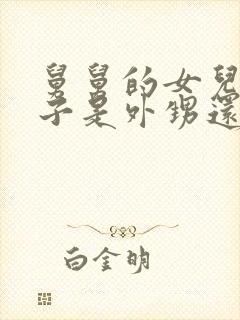 舅舅的女兒
子是外甥還
白金明